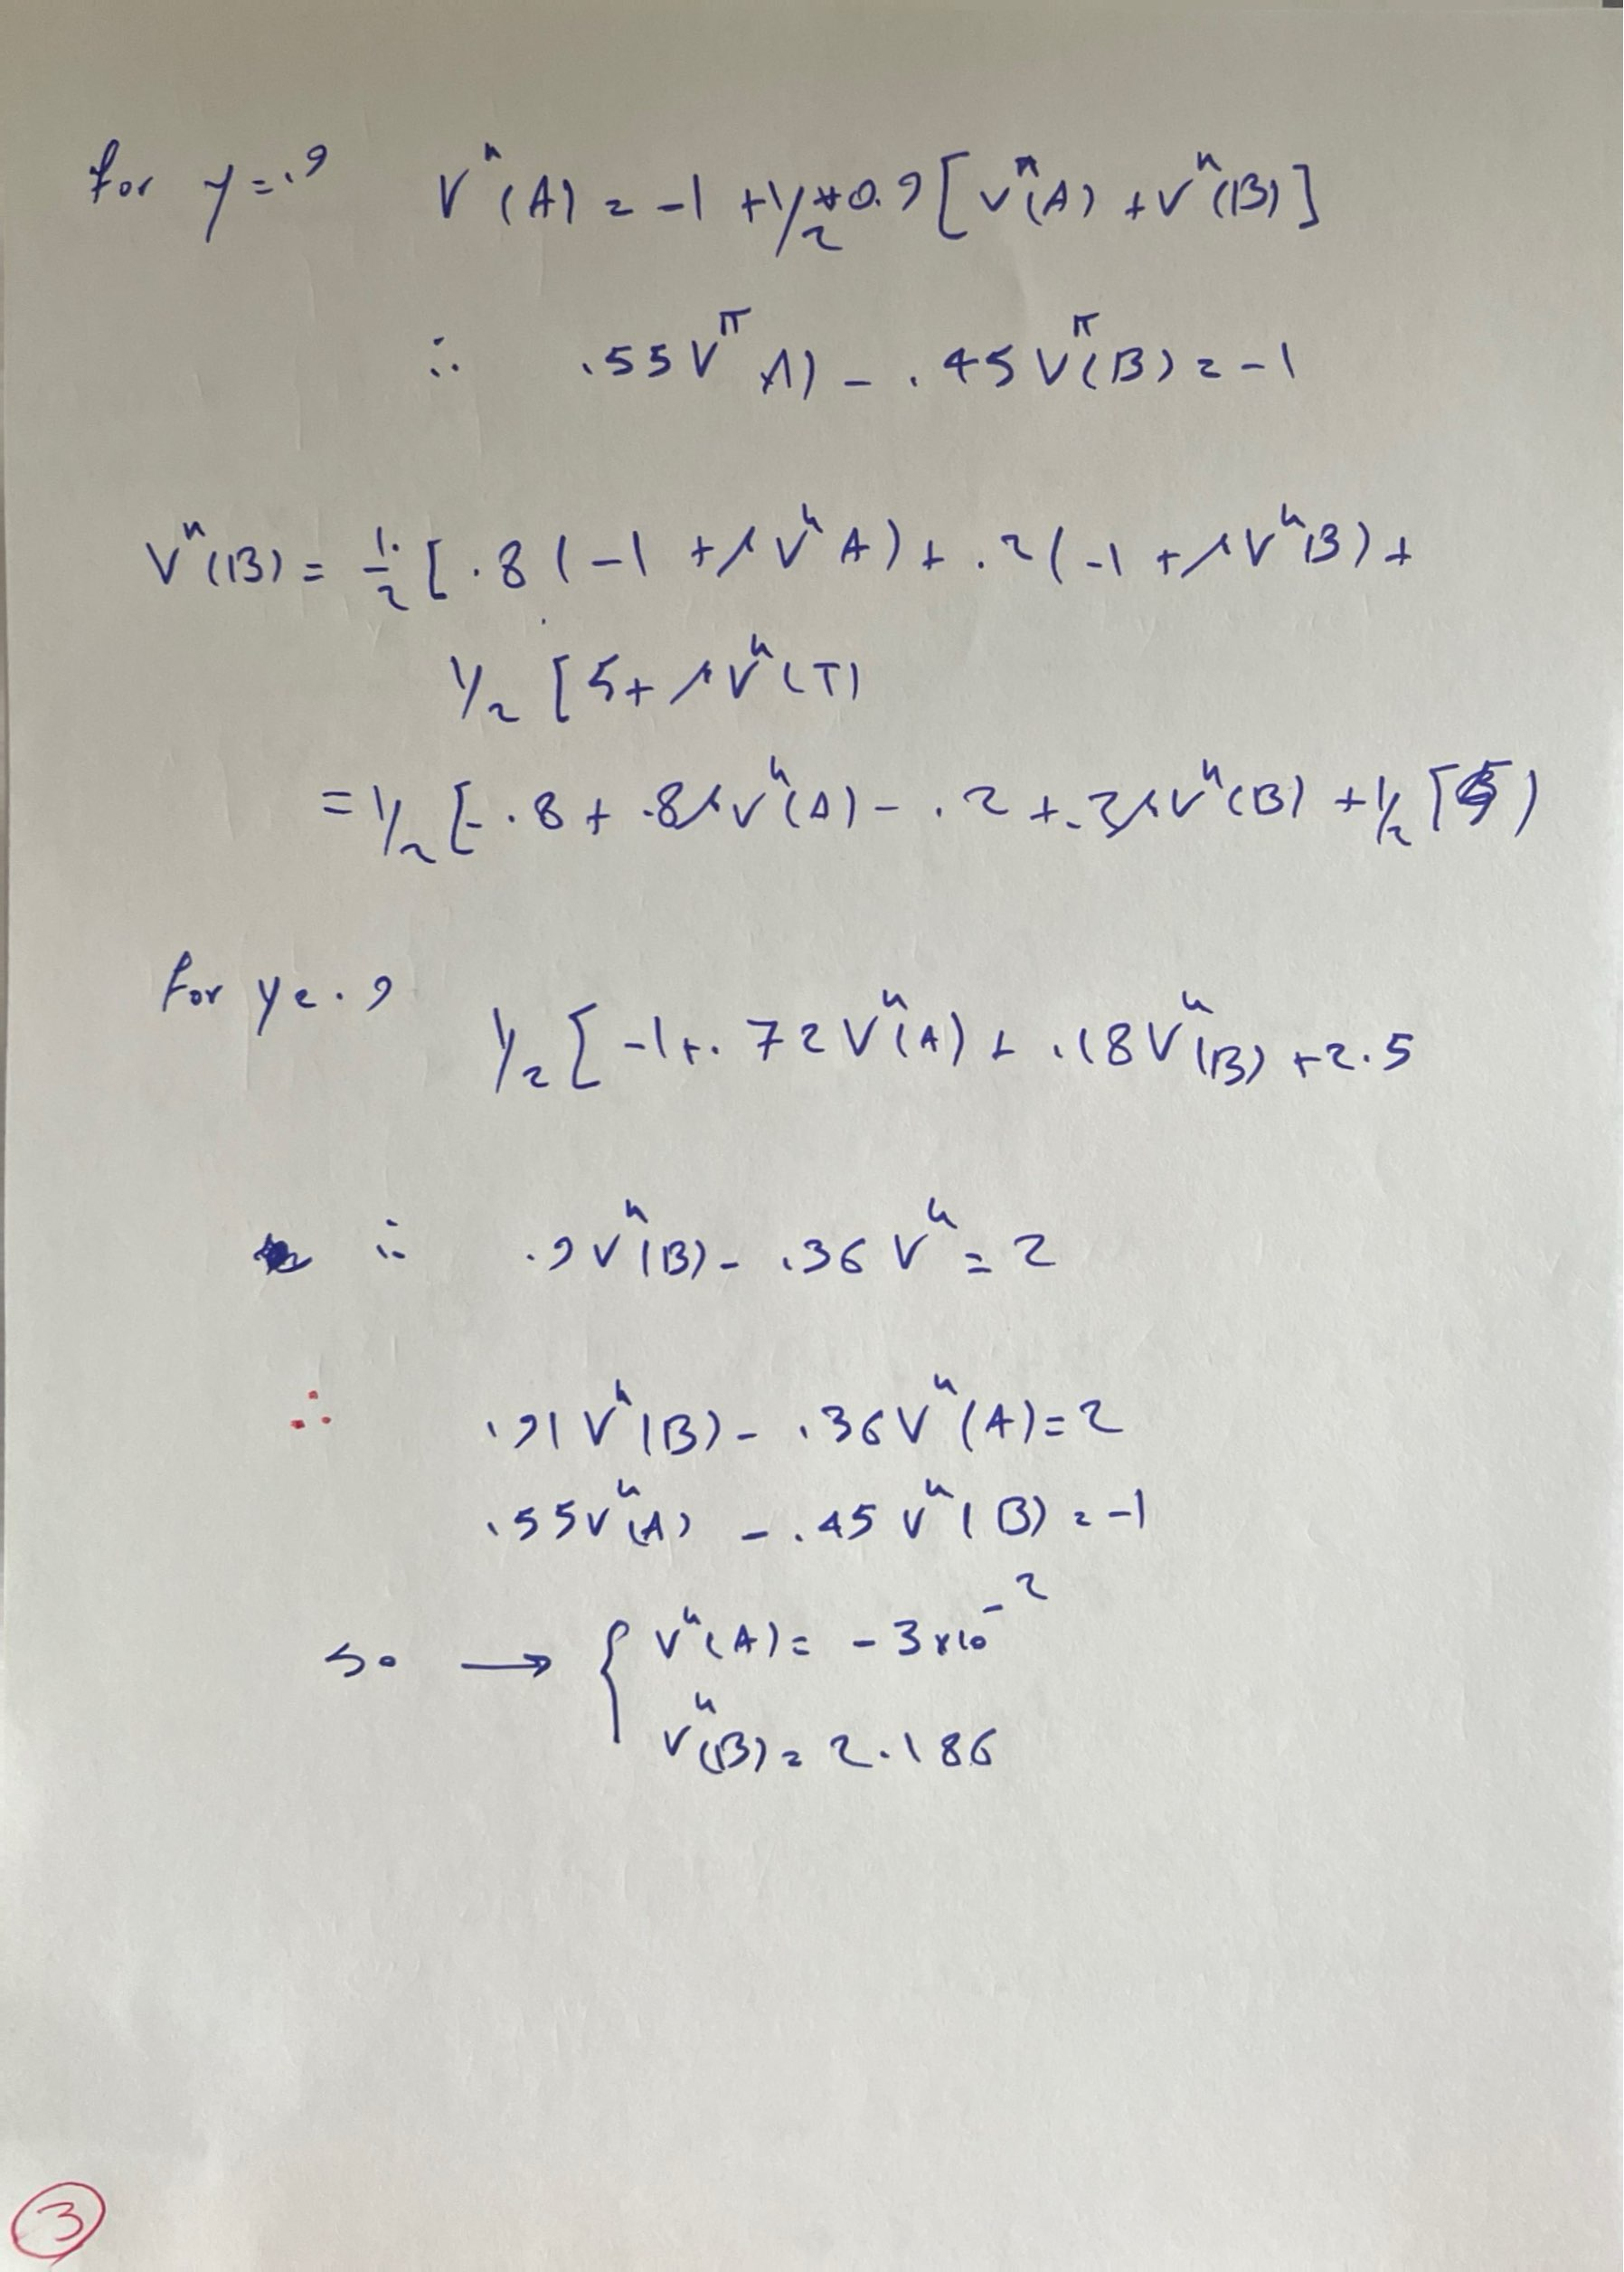 for γ = .9 V^π(A) = -1 + 1/2 * 0.9 [ V^π(A) + V^π(B) ]
∴ .55 V^π A) - .45 V^π(B) = -1
V^π(B) = 1/2 [ .8 ( -1 + γ V^π A) + .2 ( -1 + γ V^π B) +
1/2 [ 5 + γ V^π (T)
= 1/2 [ - .8 + .8 γ V^π(A) - .2 + .2 γ V^π(B) + 1/2 [5)
for γ = .9
1/2 [ -1 + .72 V^π(A) + .18 V^π(B) + 2.5
∴ .9 V^π(B) - .36 V^π = 2
∴ .91 V^π(B) - .36 V^π(A) = 2
.55 V^π(A) - .45 V^π(B) = -1
so → { V^π(A) = -3 × 10^-2
V^π(B) = 2.186
3